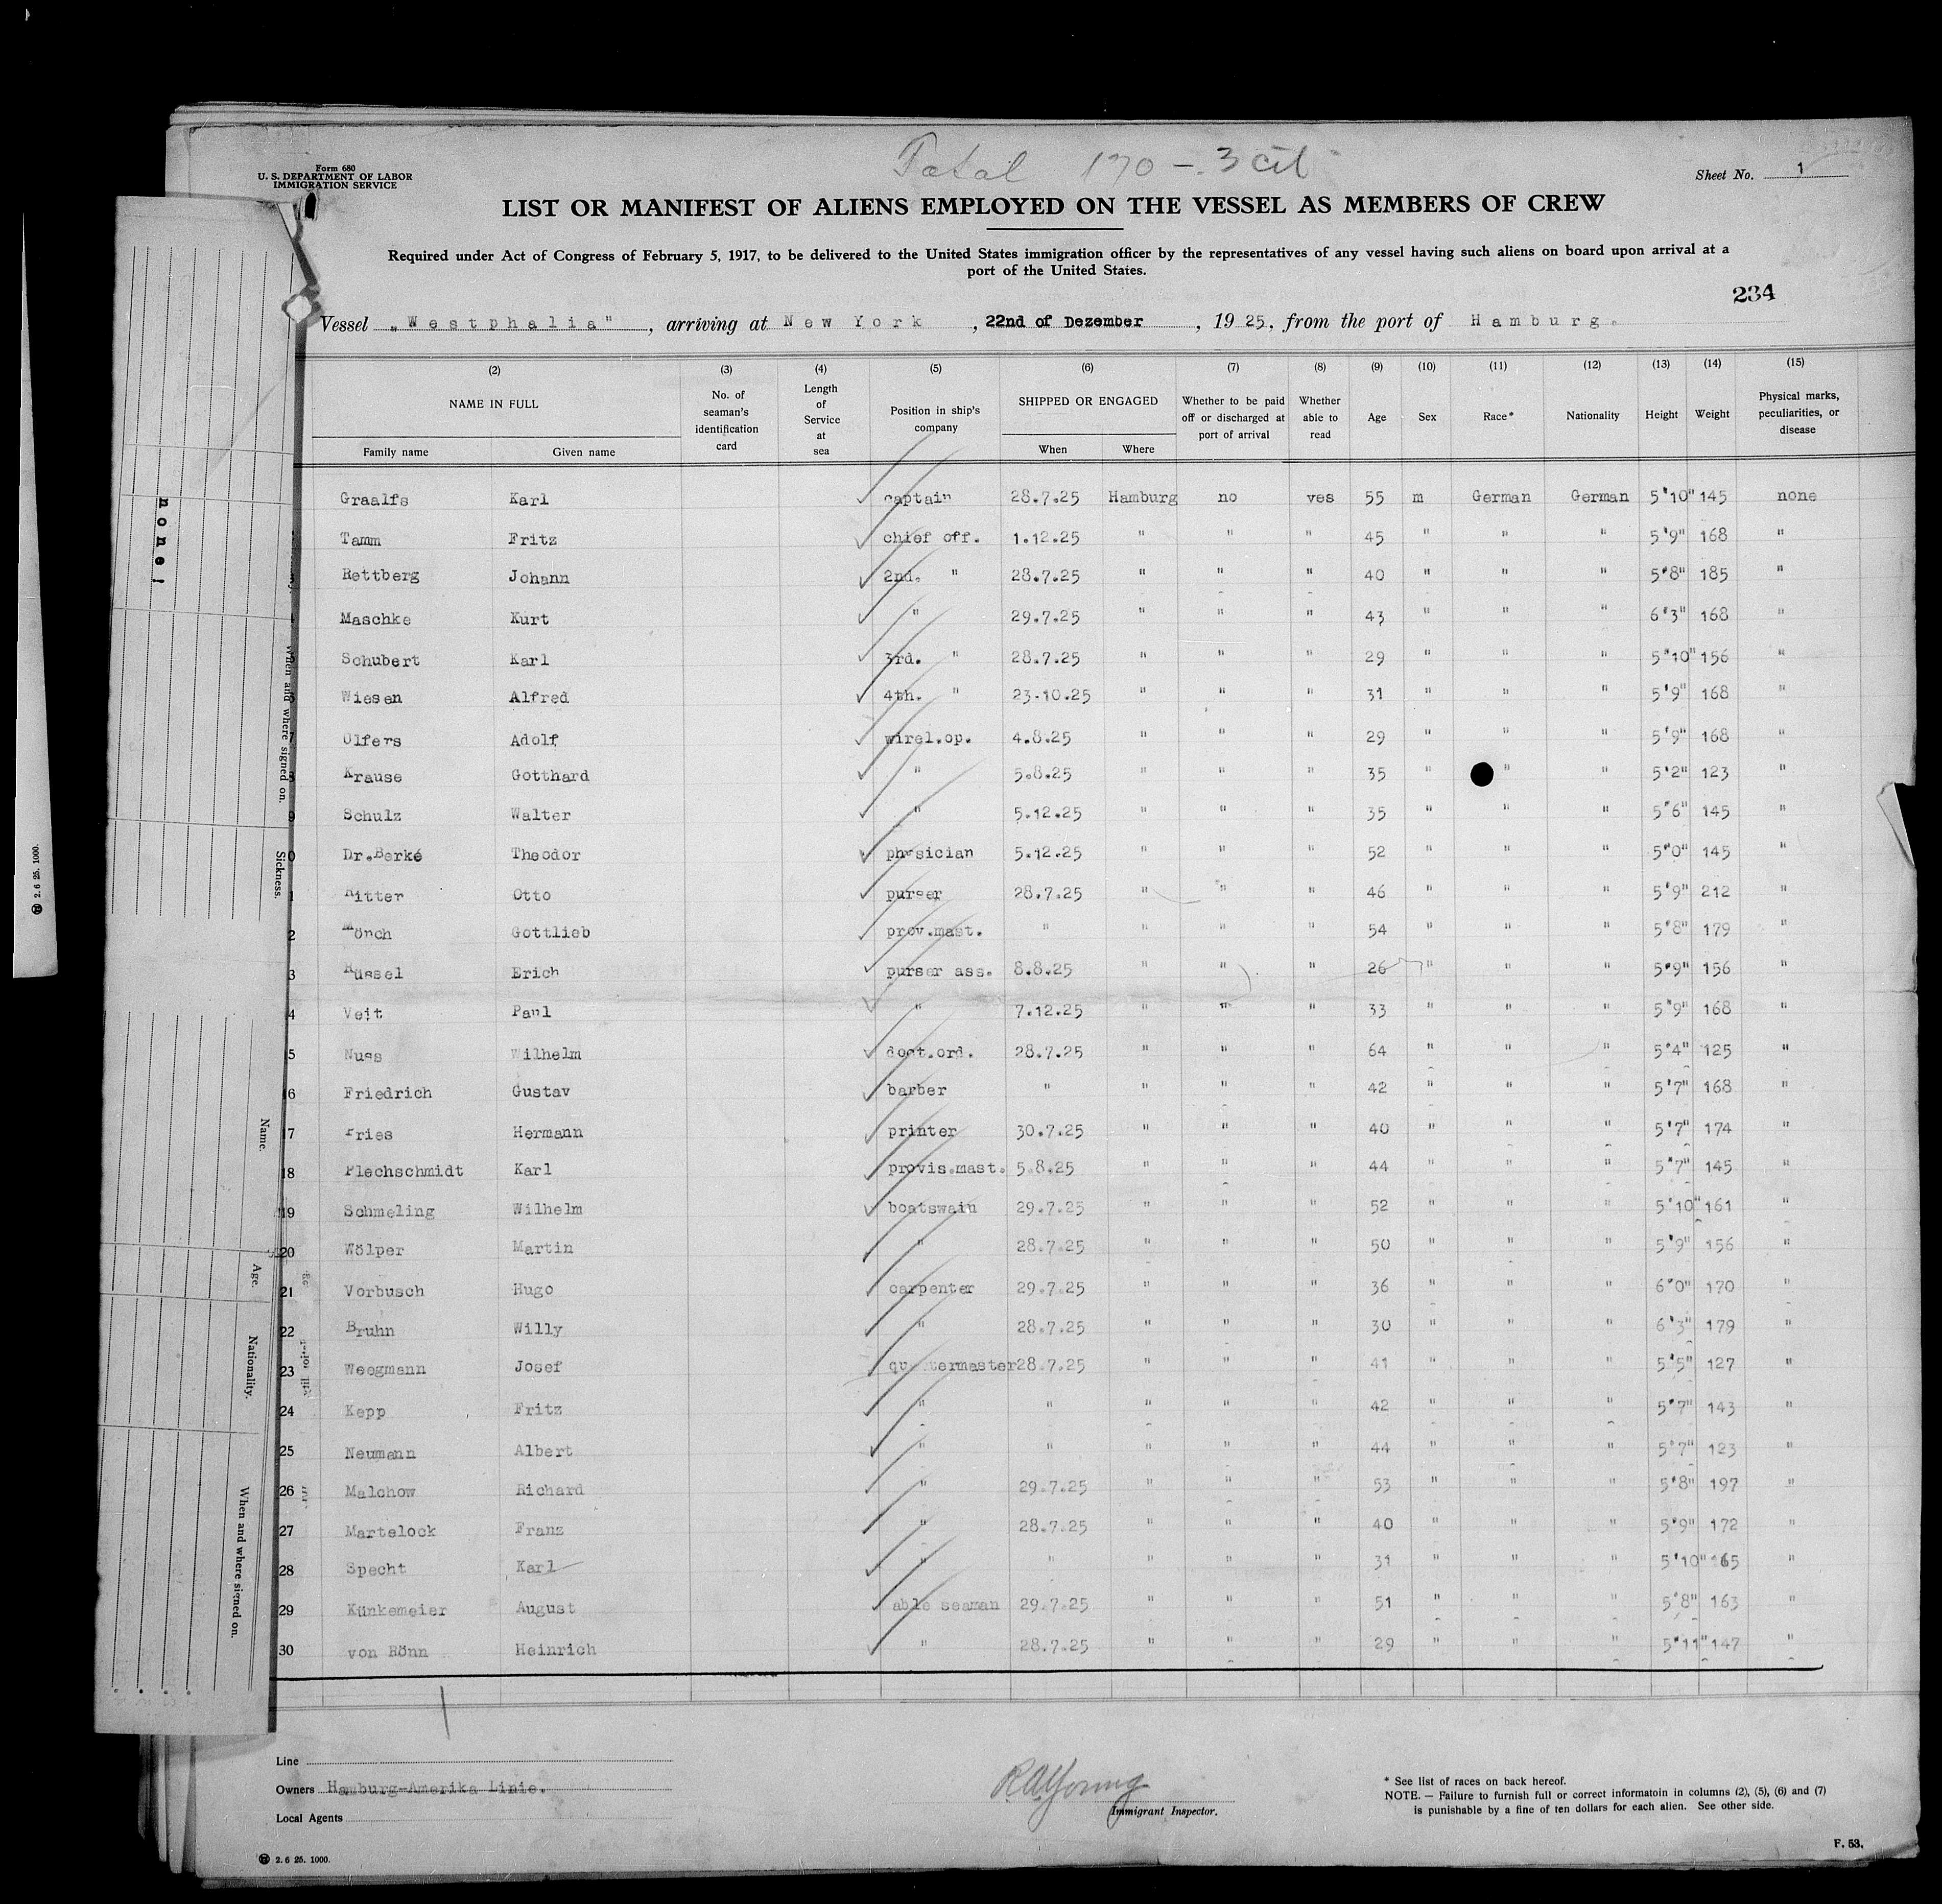 Total 170 - 3 cit
Form 680
U. S. DEPARTMENT OF LABOR
IMMIGRATION SERVICE
Sheet No. 1
LIST OR MANIFEST OF ALIENS EMPLOYED ON THE VESSEL AS MEMBERS OF CREW
Required under Act of Congress of February 5, 1917, to be delivered to the United States immigration officer by the representatives of any vessel having such aliens on board upon arrival at a
port of the United States.
234
Vessel „Westphalia", arriving at New York, 22nd of Dezember, 1925, from the port of Hamburg.
(2) (3) (4) (5) (6) (7) (8) (9) (10) (11) (12) (13) (14) (15)
NAME IN FULL
Family name Given name
No. of seaman's identification card
Length of Service at sea
Position in ship's company
SHIPPED OR ENGAGED
When Where
Whether to be paid off or discharged at port of arrival
Whether able to read
Age
Sex
Race*
Nationality
Height
Weight
Physical marks, peculiarities, or disease
Graalfs Karl captain 28.7.25 Hamburg no yes 55 m German German 5'10" 145 none
Tamm Fritz chief off. 1.12.25 " " " 45 " " " 5'9" 168 "
Rettberg Johann 2nd. " 28.7.25 " " " 40 " " " 5'8" 185 "
Maschke Kurt " 29.7.25 " " " 43 " " " 6'3" 168 "
Schubert Karl 3rd. " 28.7.25 " " " 29 " " " 5'10" 156 "
Wiesen Alfred 4th. " 23.10.25 " " " 31 " " " 5'9" 168 "
7 Olfers Adolf wirel.op. 4.8.25 " " " 29 " " " 5'9" 168 "
8 Krause Gotthard " 5.8.25 " " " 35 " " " 5'2" 123 "
9 Schulz Walter " 5.12.25 " " " 35 " " " 5'6" 145 "
0 Dr.Berké Theodor physician 5.12.25 " " " 52 " " " 5'0" 145 "
1 Ritter Otto purser 28.7.25 " " " 46 " " " 5'9" 212 "
2 Mönch Gottlieb prov.mast. " " " " 54 " " " 5'8" 179 "
3 Küssel Erich purser ass. 8.8.25 " " " 26 " " " 5'9" 156 "
4 Veit Paul " 7.12.25 " " " 33 " " " 5'9" 168 "
5 Nuss Wilhelm doct.ord. 28.7.25 " " " 64 " " " 5'4" 125 "
16 Friedrich Gustav barber " " " " 42 " " " 5'7" 168 "
17 Fries Hermann printer 30.7.25 " " " 40 " " " 5'7" 174 "
18 Plechschmidt Karl provis.mast. 5.8.25 " " " 44 " " " 5'7" 145 "
19 Schmeling Wilhelm boatswain 29.7.25 " " " 52 " " " 5'10" 161 "
20 Wölper Martin " 28.7.25 " " " 50 " " " 5'9" 156 "
21 Vorbusch Hugo carpenter 29.7.25 " " " 36 " " " 6'0" 170 "
22 Bruhn Willy " 28.7.25 " " " 30 " " " 6'3" 179 "
23 Weegmann Josef quartermaster 28.7.25 " " " 41 " " " 5'5" 127 "
24 Kepp Fritz " " " " " 42 " " " 5'7" 143 "
25 Neumann Albert " " " " " 44 " " " 5'7" 123 "
26 Malchow Richard " 29.7.25 " " " 53 " " " 5'8" 197 "
27 Martelock Franz " 28.7.25 " " " 40 " " " 5'9" 172 "
28 Specht Karl " " " " " 31 " " " 5'10" 165 "
29 Künkemeier August able seaman 29.7.25 " " " 51 " " " 5'8" 163 "
30 von Rönn Heinrich " 28.7.25 " " " 29 " " " 5'11" 147 "
Line
Owners Hamburg-Amerika Linie.
Local Agents
R A Young
Immigrant Inspector.
* See list of races on back hereof.
NOTE. — Failure to furnish full or correct informatoin in columns (2), (5), (6) and (7)
is punishable by a fine of ten dollars for each alien. See other side.
F. 53.
2. 6 25. 1000.
none!
When and where signed on.
Sickness.
Name.
Age.
Nationality.
When and where signed on.
2. 6 25. 1000.